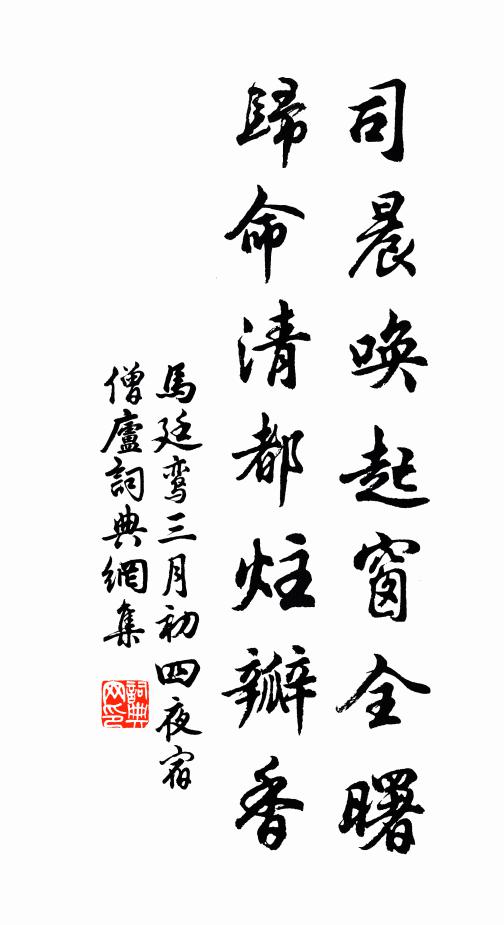 司晨喚起窗全曙
歸命清都炷瓣香
馬廷鸞三月初四夜宿
僧廬詞典網集
詞典
网印